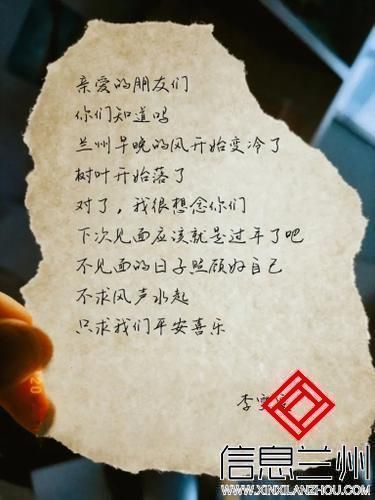 亲爱的朋友们
你们知道吗
兰州早晚的风开始变冷了
树叶开始落了
对了，我很想念你们
下次见面应该就是过年了吧
不见面的日子照顾好自己
不求风声水起
只求我们平安喜乐
李雯
信息兰州
WWW.XINXILANZHOU.COM